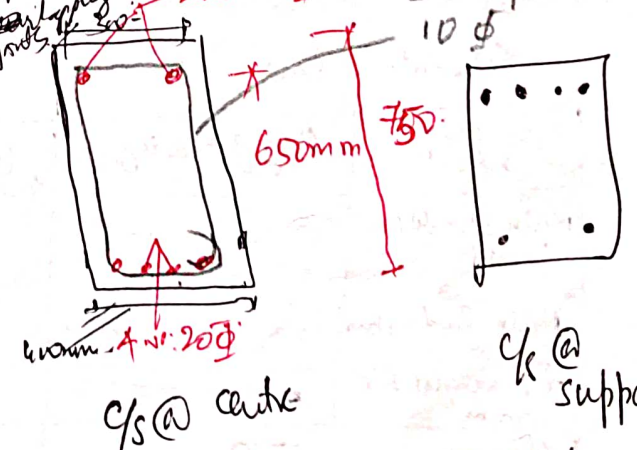 10 ɸ
650mm
750.
400mm
4 No. 20Φ
C/S @ centre
C/S @
suppo